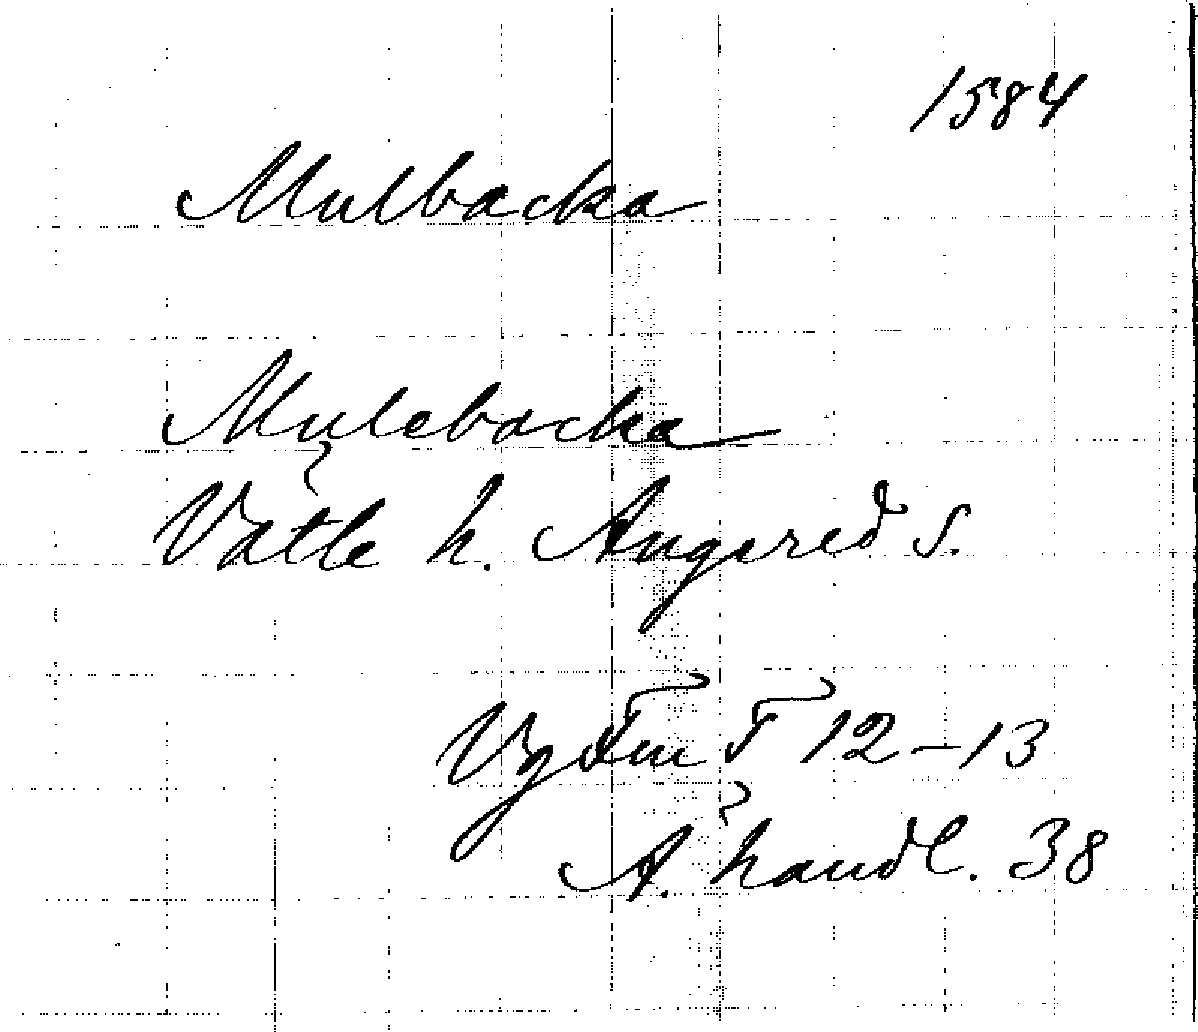 1584
Mulbacka
Mulebacka
Vätle h. Angered s.
Vg Fm F 12-13
Ä. handl. 38